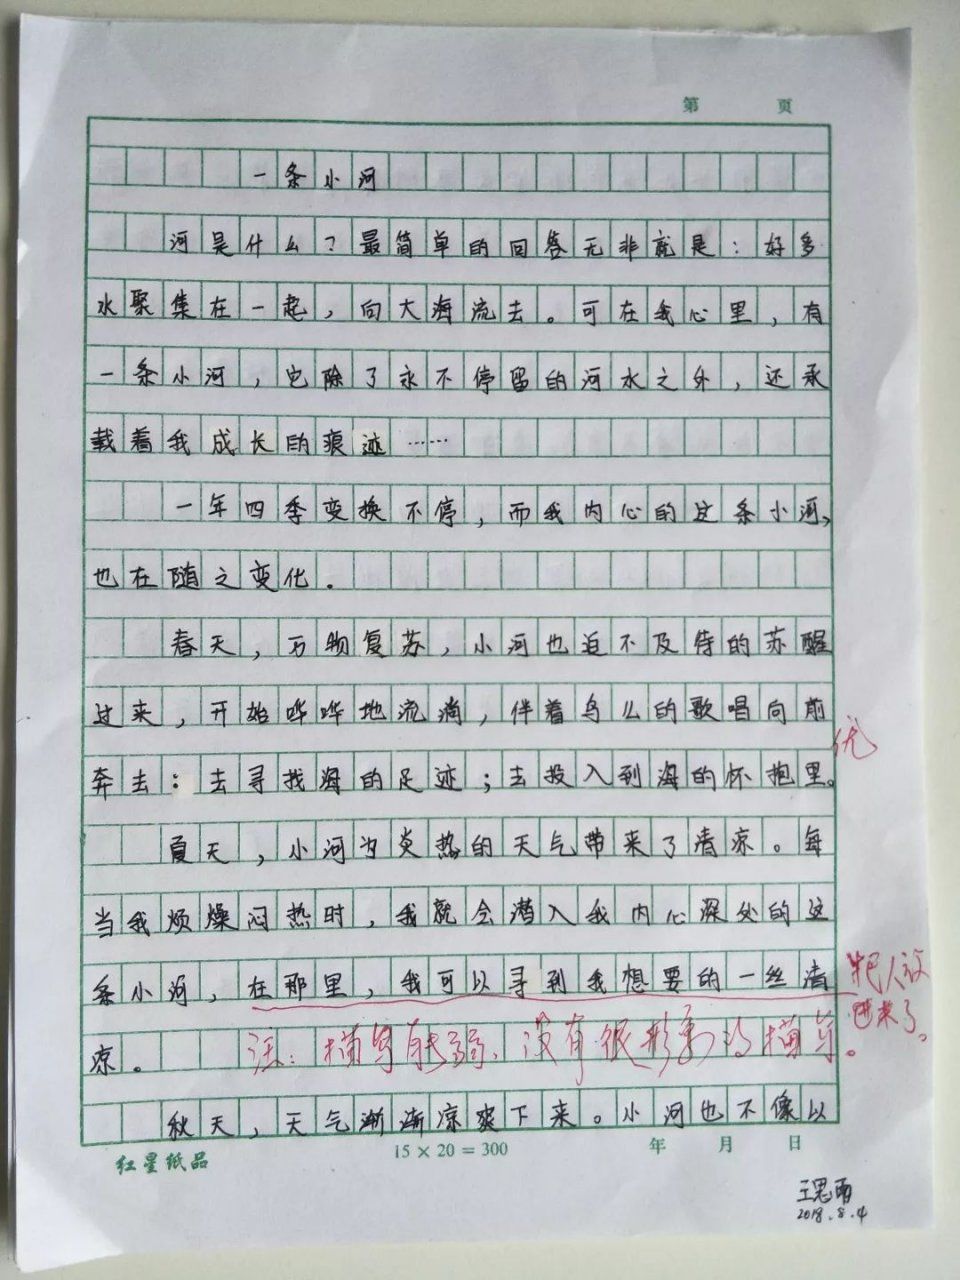 第 页
一条小河
河是什么？最简单的回答无非就是：好多
水聚集在一起，向大海流去。可在我心里，有
一条小河，它除了永不停留的河水之外，还承
载着我成长的痕迹……
一年四季变换不停，而我内心的这条小河，
也在随之变化。
春天，万物复苏，小河也迫不及待的苏醒
过来，开始哗哗地流淌，伴着鸟儿的歌唱向前
优
奔去：去寻找海的足迹；去投入到海的怀抱里。
夏天，小河为炎热的天气带来了清凉。每
当我烦燥闷热时，我就会潜入我内心深处的这
条小河，在那里，我可以寻到我想要的一丝清
把人设
出来了。
凉。
注：描写有些弱，没有很形象的描写。
秋天，天气渐渐凉爽下来。小河也不像以
红星纸品 15×20=300 年 月 日
王思雨
2018.8.4